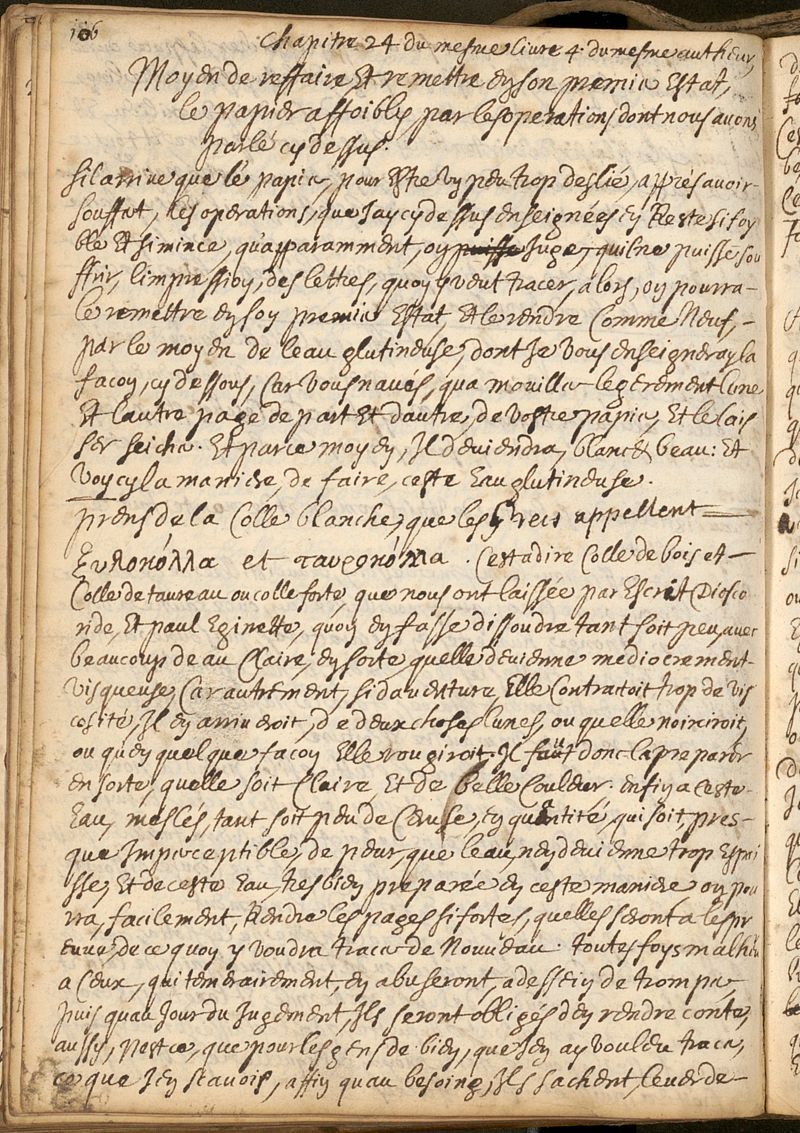 106
Chapitre 24 du mesme livre 4. du mesme autheur,
Moyen de reffaire, Et remettre en son premier Estat,
le papier affoibly par les operations dont nous avons
parlé cy dessus.
Sil arrive que le papier, pour Estre un peu trop deslié, apprés avoir
souffert, les operations, que Jay cy dessus enseignées en Reste si foy
ble Et si mince, qu'apparamment, on puisse Juger, quil ne puisse sou
ffrir, l'impression, des lettres, quon y veut tracer, alors, on pourra
le remettre en son premier Estat, Et le rendre Comme Neuf,
par le moyen de l'eau glutineuse, dont Je vous enseigneray la
facon, cy dessous, Car vous n'avés, qua mouiller legerement l'une
Et l'autre page de part Et d'autre, de vostre papier, Et le lais
ser seicher. Et par ce moyen, Il deviendra, blanc & beau: Et
voycy la maniere, de faire, ceste Eau glutineuse.
prens de la Colle blanche, que les Grecs appellent
ξυλοκόλλα et ταυροκόλλα. C'est a dire Colle de bois et
Colle de taureau ou colle forte, que nous ont laissée par Escrit Diosco
ride, Et paul Eginette, quon en fasse dissoudre tant soit peu, avec
beaucoup deau Claire, en sorte, quelle devienne mediocrement
visqueuse, Car autrement, si d'aventure, Elle Contractoit trop de vis
cosité, Il en arriveroit, de deux choses l'unes, ou quelle noirciroit,
ou qu'en quelque facon Elle rougiroit. Il faut donc la preparer
en sorte, quelle soit Claire, Et de belle Couleur. enfin a ceste
Eau, meslés, tant soit peu de Ceruse, en quantité, qui soit, pres-
que Imperceptible, de peur, que leau, n'en devienne trop Espai
sse, Et de ceste Eau, tres bien preparée en ceste maniere on pou
rra, facilement, Rendre les pages si fortes, quelles seront a lespr
euve, de ce quon y voudra tracer de Nouveau. toutesfoys malheur
a Ceux, qui temerairement, en abuseront, a dessein de tromper,
puis quau Jour du Jugement, Ils seront obligés d'en rendre conte,
aussy, n'est ce, que pour les gens de bien, que J'en ay voulu tracer,
ce que J'en scavois, affin quau besoing, Ils sachent, leur de-